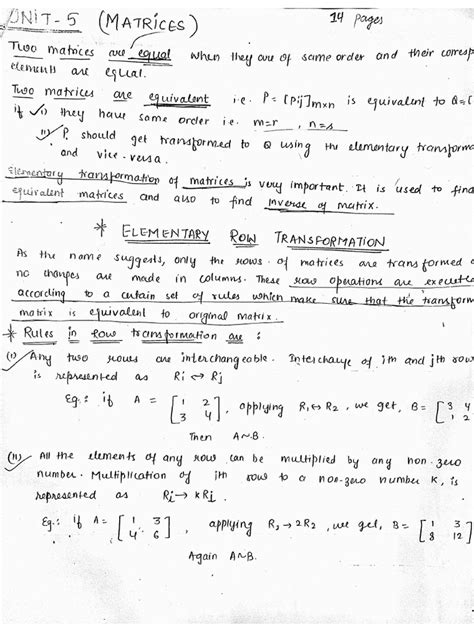 UNIT-5 (MATRICES) 14 pages
Two matrices are equal when they are of same order and their corresp
elements are equal.
Two matrices are equivalent i.e. P = [Pij]m×n is equivalent to Q=[
if (i) they have same order i.e. m=r, n=s
(ii) P should get transformed to Q using the elementary transforma
and vice-versa.
Elementary transformation of matrices is very important. It is used to find
equivalent matrices and also to find inverse of matrix.
* ELEMENTARY ROW TRANSFORMATION
As the name suggests, only the rows of matrices are transformed a
no changes are made in columns. These row operations are executed
according to a certain set of rules which make sure that the transform
matrix is equivalent to original matrix.
* Rules in row transformation are :
(i) Any two rows are interchangeable. Interchange of ith and jth row
is represented as Ri ↔ Rj
Eg : if A = [1 2
3 4], applying R1 ↔ R2, we get, B = [3 4
1 2
Then A~B.
(ii) All the elements of any row can be multiplied by any non-zero
number. Multiplication of ith row to a non-zero number K, is
represented as Ri → kRi
Eg : if A = [1 3
4 6], applying R2 → 2R2, we get, B = [1 3
8 12]
Again A~B.